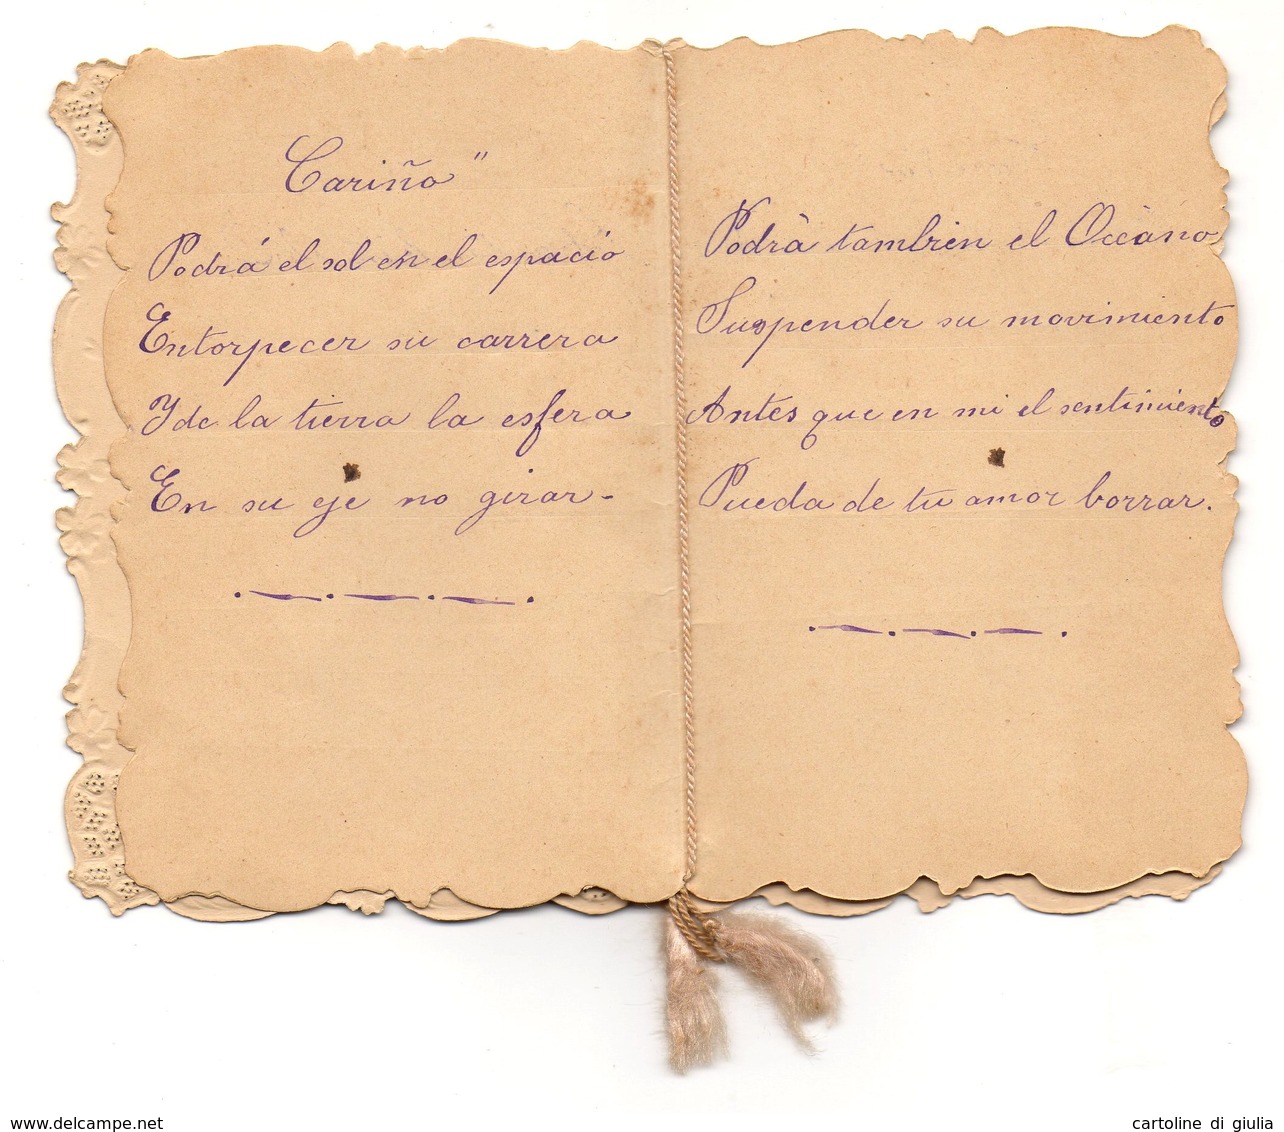 Cariño"
Podrá el sol en el espacio
Entorpecer su carrera
Y de la tierra la esfera
En su eje no girar-
Podrà tambien el Océano
Suspender su movimiento
Antes que en mi el sentimiento
Pueda de tu amor borrar.
delcampe.net
cartoline di giulia